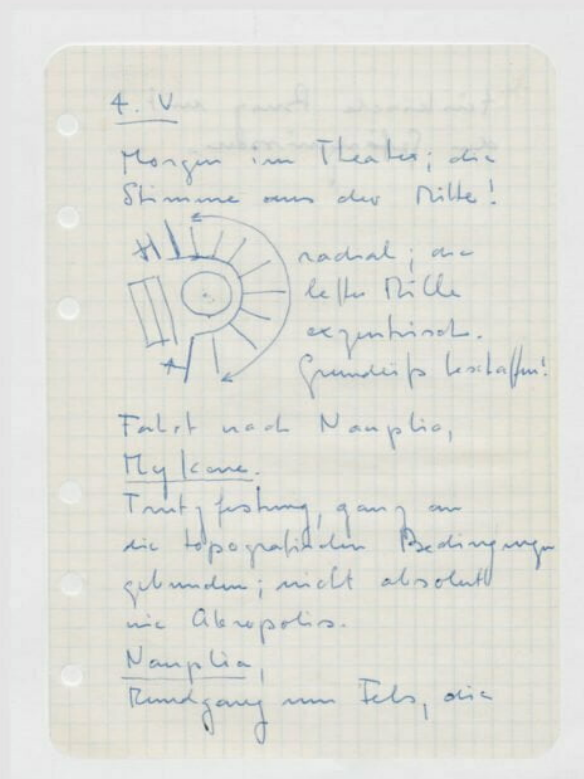 4. V
Morgen im Theater; die
Stimme aus der Mitte!
radial; die
Mitte
exzentrisch.
Grundriss beschaffen!
Fahrt nach Nauplia,
Mykene.
Trutzfestung, ganz an
die topografischen Bedingungen
gebunden; nicht absolut
wie Akropolis.
Nauplia,
Rundgang um Fels, die